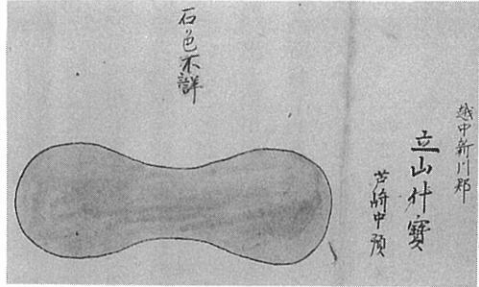 越中新川郡
立山什寳
芦峅中預
石色不詳